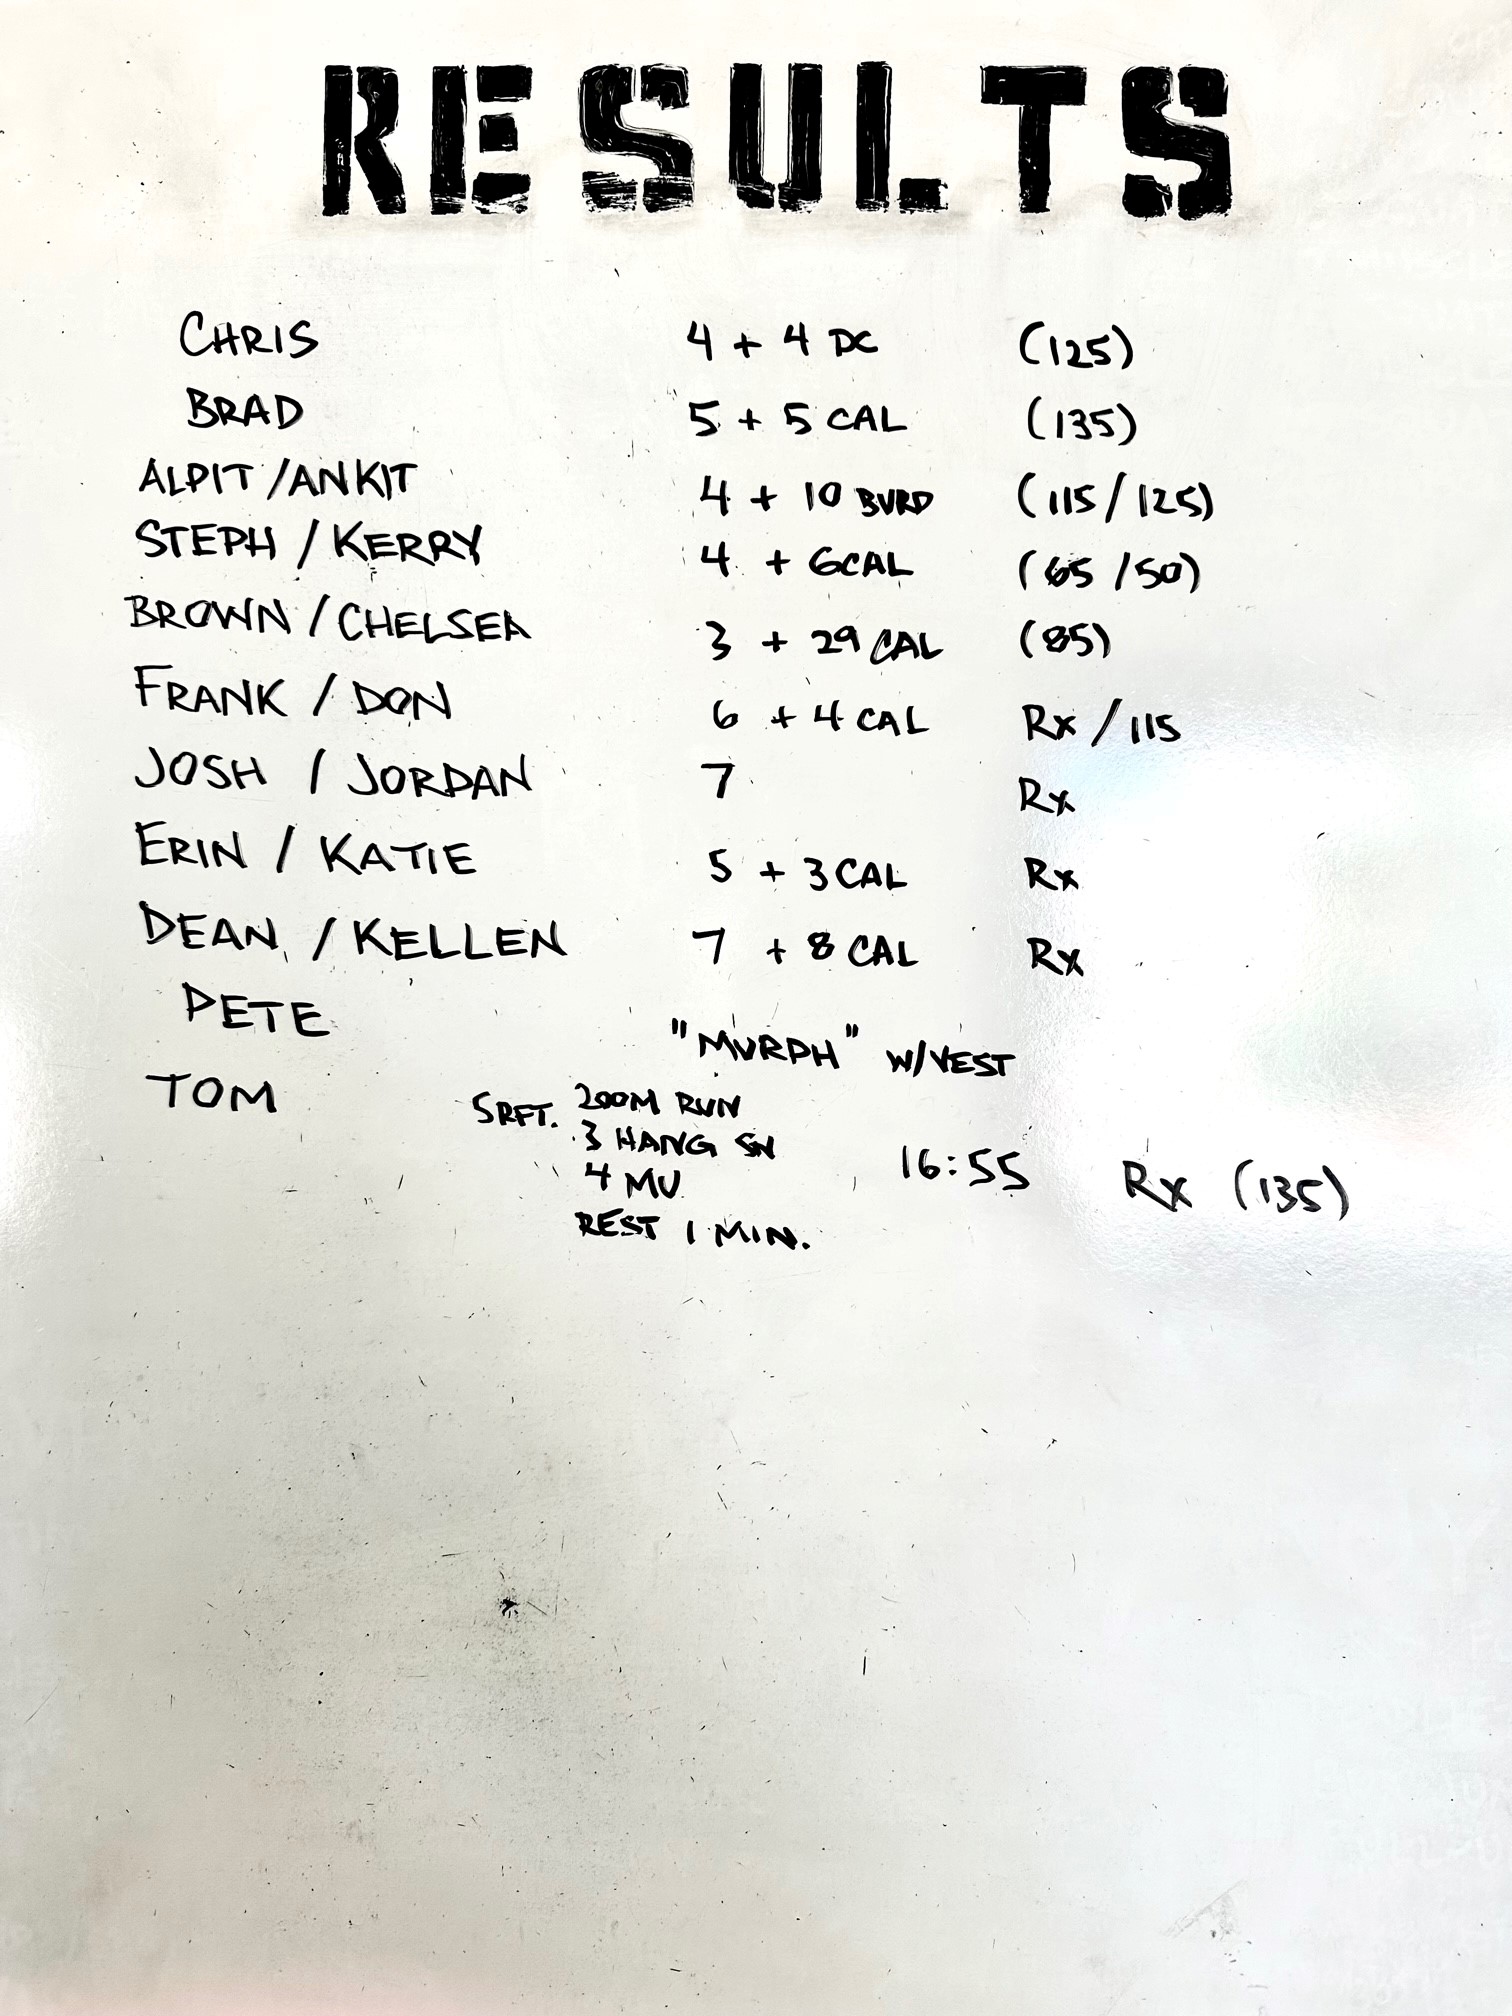 RESULTS
CHRIS 4 + 4 DC (125)
BRAD 5 + 5 CAL (135)
ALPIT / ANKIT 4 + 10 BURD (115/125)
STEPH / KERRY 4 + 6 CAL (65/50)
BROWN / CHELSEA 3 + 29 CAL (85)
FRANK / DON 6 + 4 CAL Rx / 115
JOSH / JORDAN 7 Rx
ERIN / KATIE 5 + 3 CAL Rx
DEAN / KELLEN 7 + 8 CAL Rx
PETE "MURPH" W/VEST
TOM 5RFT. 200M RUN
3 HANG SN
4 MU 16:55 Rx (135)
REST 1 MIN.